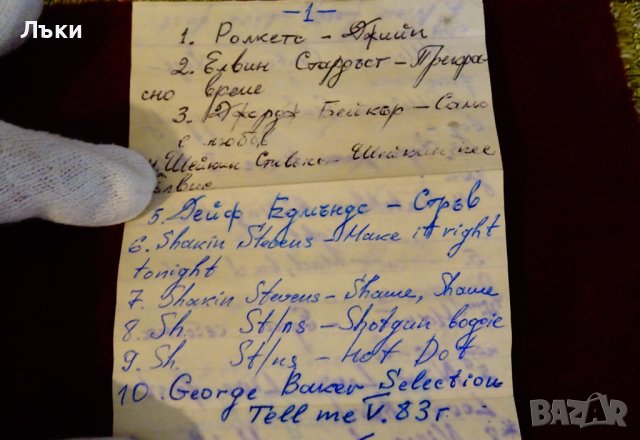 Лъки
-1-
1. Ролкетс - Джийп
2. Елвин Стардъст - Прекра-
сно време
3. Джордж Бейкър - Само
с любов
4. Шейкин Стивънс - Шейкин пее
Елвис
5. Дейф Едмъндс - Стръв
6. Shakin Stevens - Make it right
tonight
7. Shakin Stevens - Shame, Shame
8. Sh. St/ns - Shotgun boggie
9. Sh. St/ns - Hot Dot
10. George Baker Selection
Tell me V. 83 г
BAZAR
bg